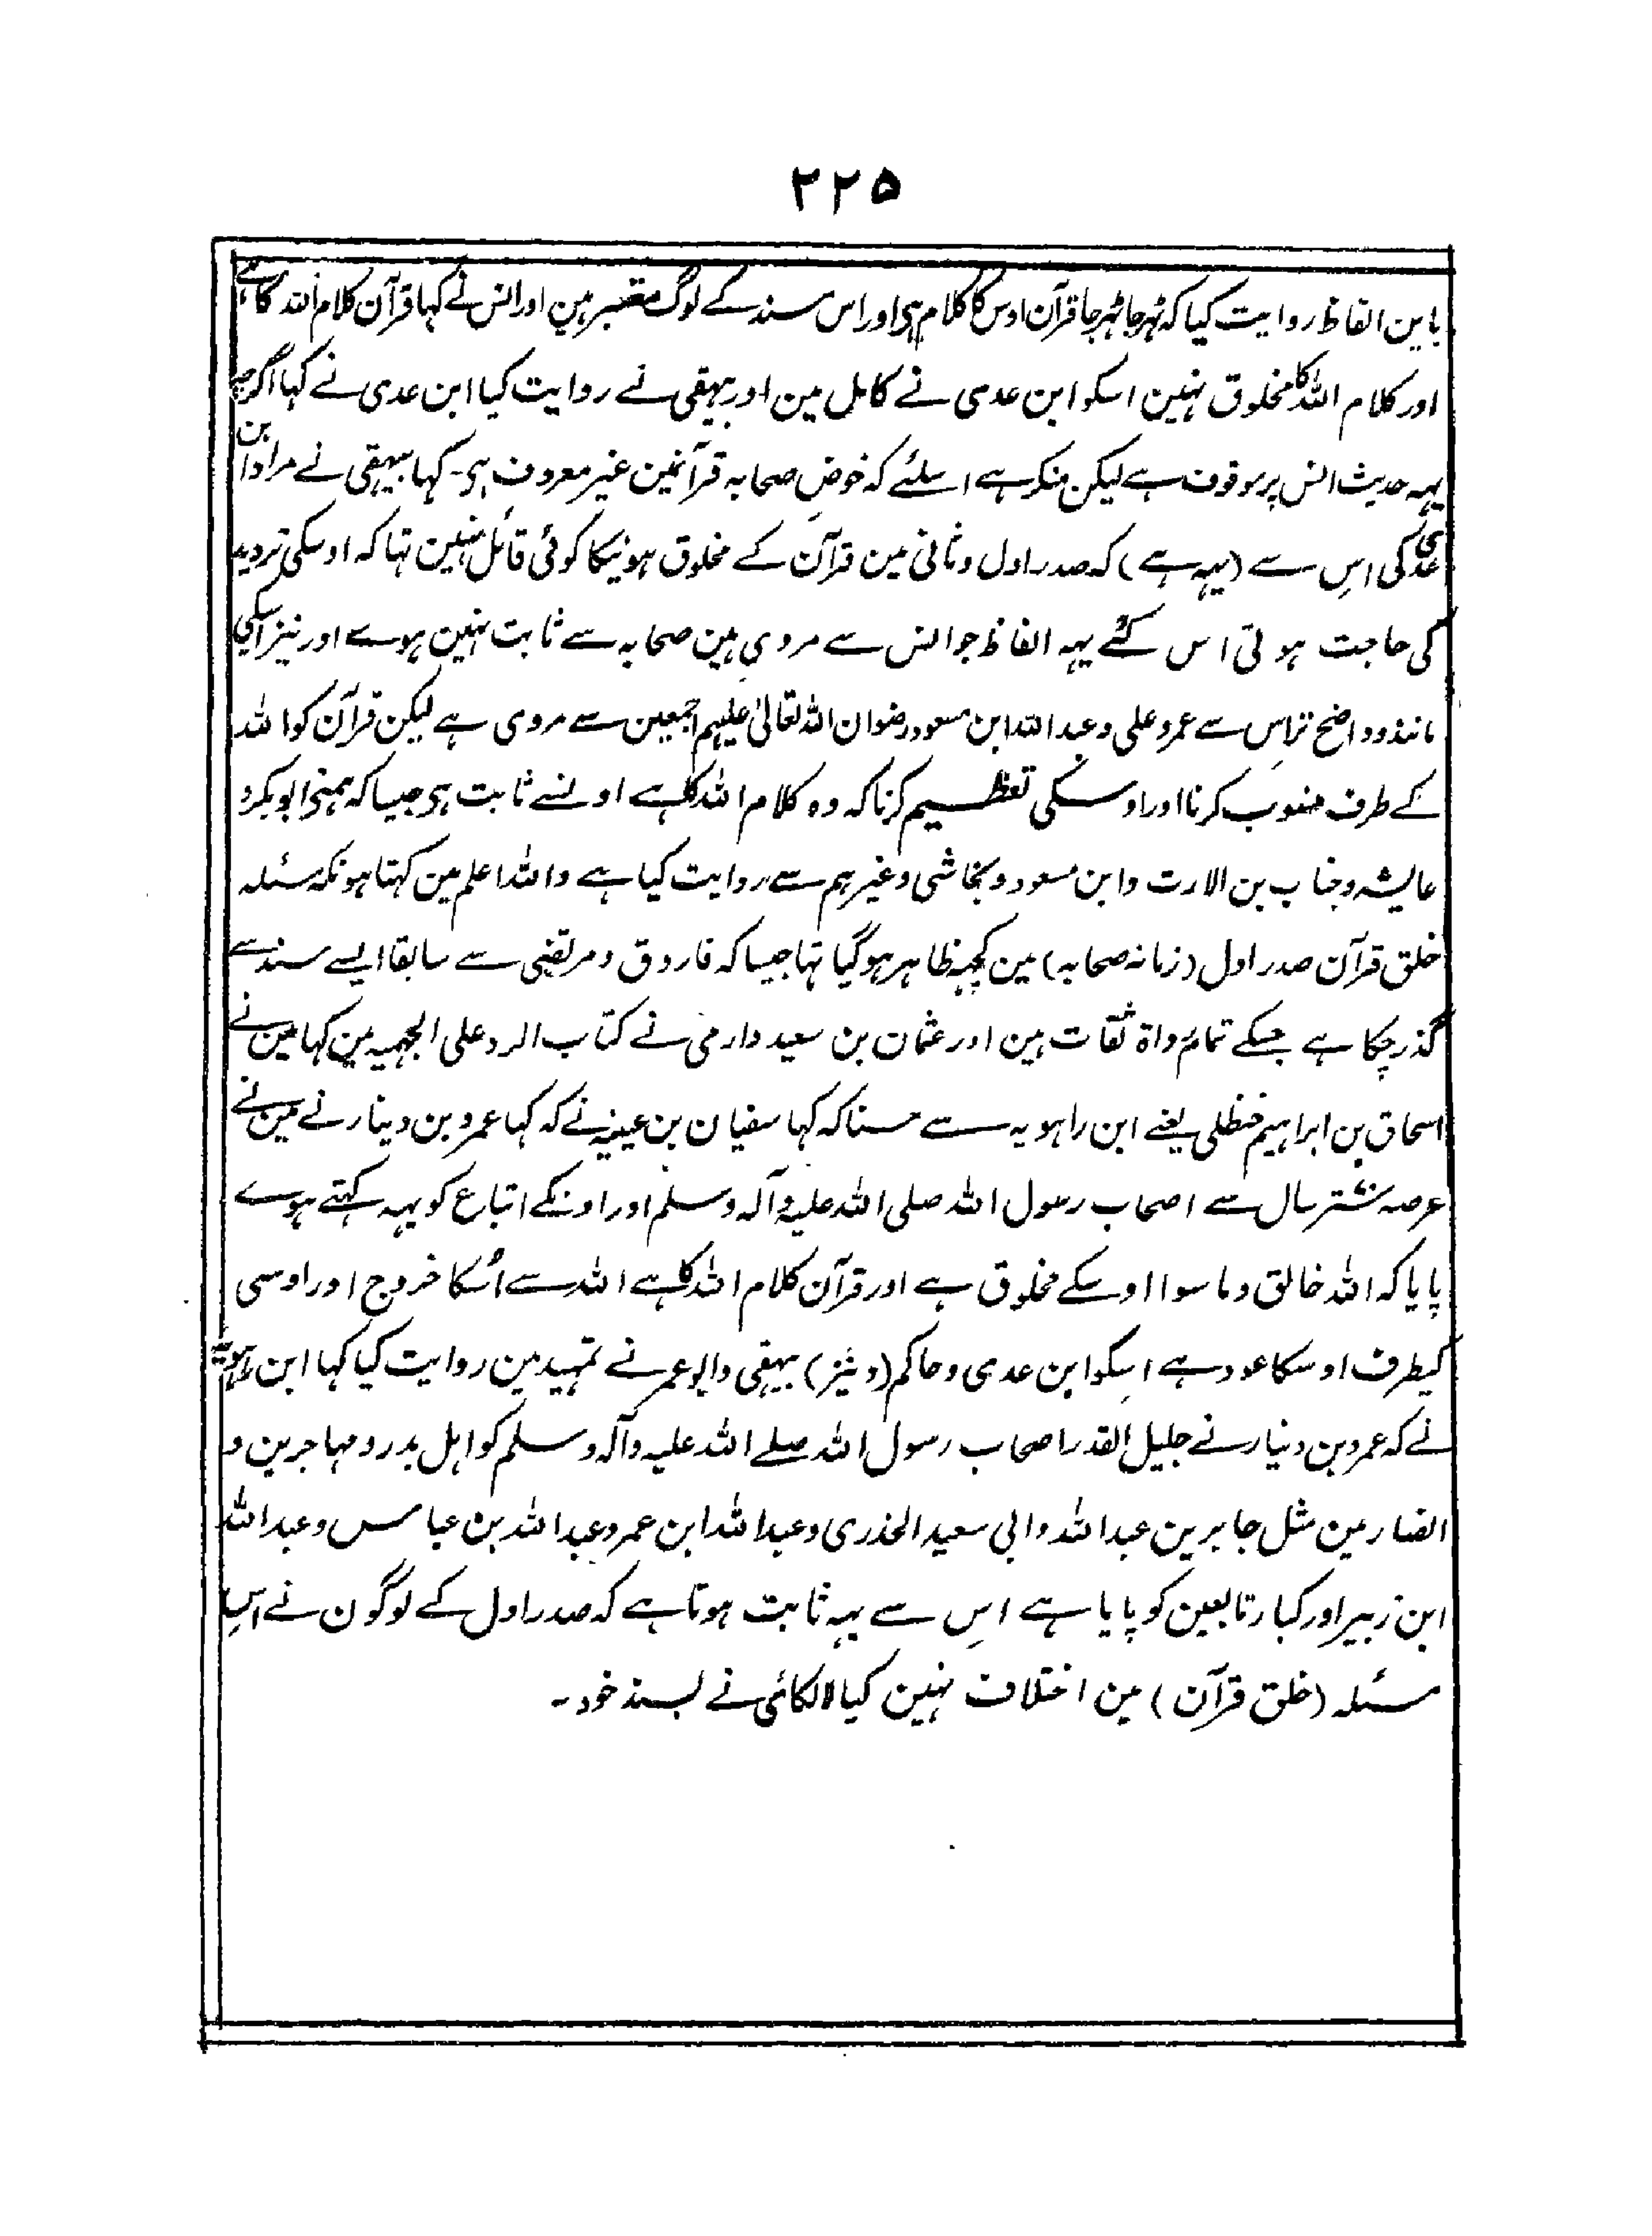 ۲۲۵
باین الفاظ روایت کیا کہ ٹہر جا ٹہر جا قرآن اوس کا کلام ہی اور اس سند کے لوگ معتبر ہین اور انس نے کہا قرآن کلام اللہ کا ہے
اور کلام اللہ کا مخلوق نہین اسکو ابن عدی نے کامل مین اور بیہقی نے روایت کیا ابن عدی نے کہا اگرچہ
یہہ حدیث انس پر موقوف ہے لیکن منکر ہے اسلئے کہ خوض صحابہ قرآنمین غیر معروف ہی۔ کہا بیہقی نے مراد ابن
عدی کی اس سے (یہہ ہے) کہ صدر اول و ثانی مین قرآن کے مخلوق ہونیکا کوئی قائل نہین تہا کہ اوسکی تردید
کی حاجت ہوتی اس لئے یہہ الفاظ جو انس سے مروی ہین صحابہ سے ثابت نہین ہوے اور نیز اسکی
مانند و واضح تر اس سے عمر و علی و عبد اللہ ابن مسعود رضوان اللہ تعالیٰ علیہم اجمعین سے مروی ہے لیکن قرآن کو اللہ
کے طرف منسوب کرنا اور اوسکی تعظیم کرنا کہ وہ کلام اللہ کا ہے اونسے ثابت ہی جیسا کہ ہمنے ابوبکر و
عایشہ و خباب بن الارت و ابن مسعود و نجاشی و غیر ہم سے روایت کیا ہے واللہ اعلم مین کہتا ہونکہ مسئلہ
خلق قرآن صدر اول (زمانہ صحابہ) مین کچہہ ظاہر ہوگیا تہا جیسا کہ فاروق و مرتضی سے سابقا ایسے سند سے
گذر چکا ہے جسکے تمام رواۃ ثقات ہین اور عثمان بن سعید دارمی نے کتاب الرد علی الجہمیہ مین کہا مین نے
اسحاق بن ابراہیم حنظلی یعنے ابن راہویہ سے سنا کہ کہا سفیان بن عیینہ نے کہ کہا عمرو بن دینار نے مین نے
عرصہ ستر سال سے اصحاب رسول اللہ صلی اللہ علیہ وآلہ وسلم اور اونکے اتباع کو یہہ کہتے ہوے
پایا کہ اللہ خالق و ما سوا اوسکے مخلوق ہے اور قرآن کلام اللہ کا ہے اللہ سے اُسکا خروج اور اوسی
کیطرف اوسکا عود ہے اسکو ابن عدی و حاکم (و نیز) بیہقی و ابو عمر نے تمہید مین روایت کیا کہا ابن راہویہ
نے کہ عمرو بن دینار نے جلیل القدر اصحاب رسول اللہ صلے اللہ علیہ وآلہ وسلم کو اہل بدر و مہاجرین و
انصار مین مثل جابر بن عبد اللہ و ابی سعید الخدری و عبد اللہ ابن عمرو عبد اللہ بن عباس و عبد اللہ
ابن زبیر اور کبار تابعین کو پایا ہے اس سے یہہ ثابت ہوتا ہے کہ صدر اول کے لوگون نے اس
مسئلہ (خلق قرآن) مین اختلاف نہین کیا لالکائی نے بسند خود ۔